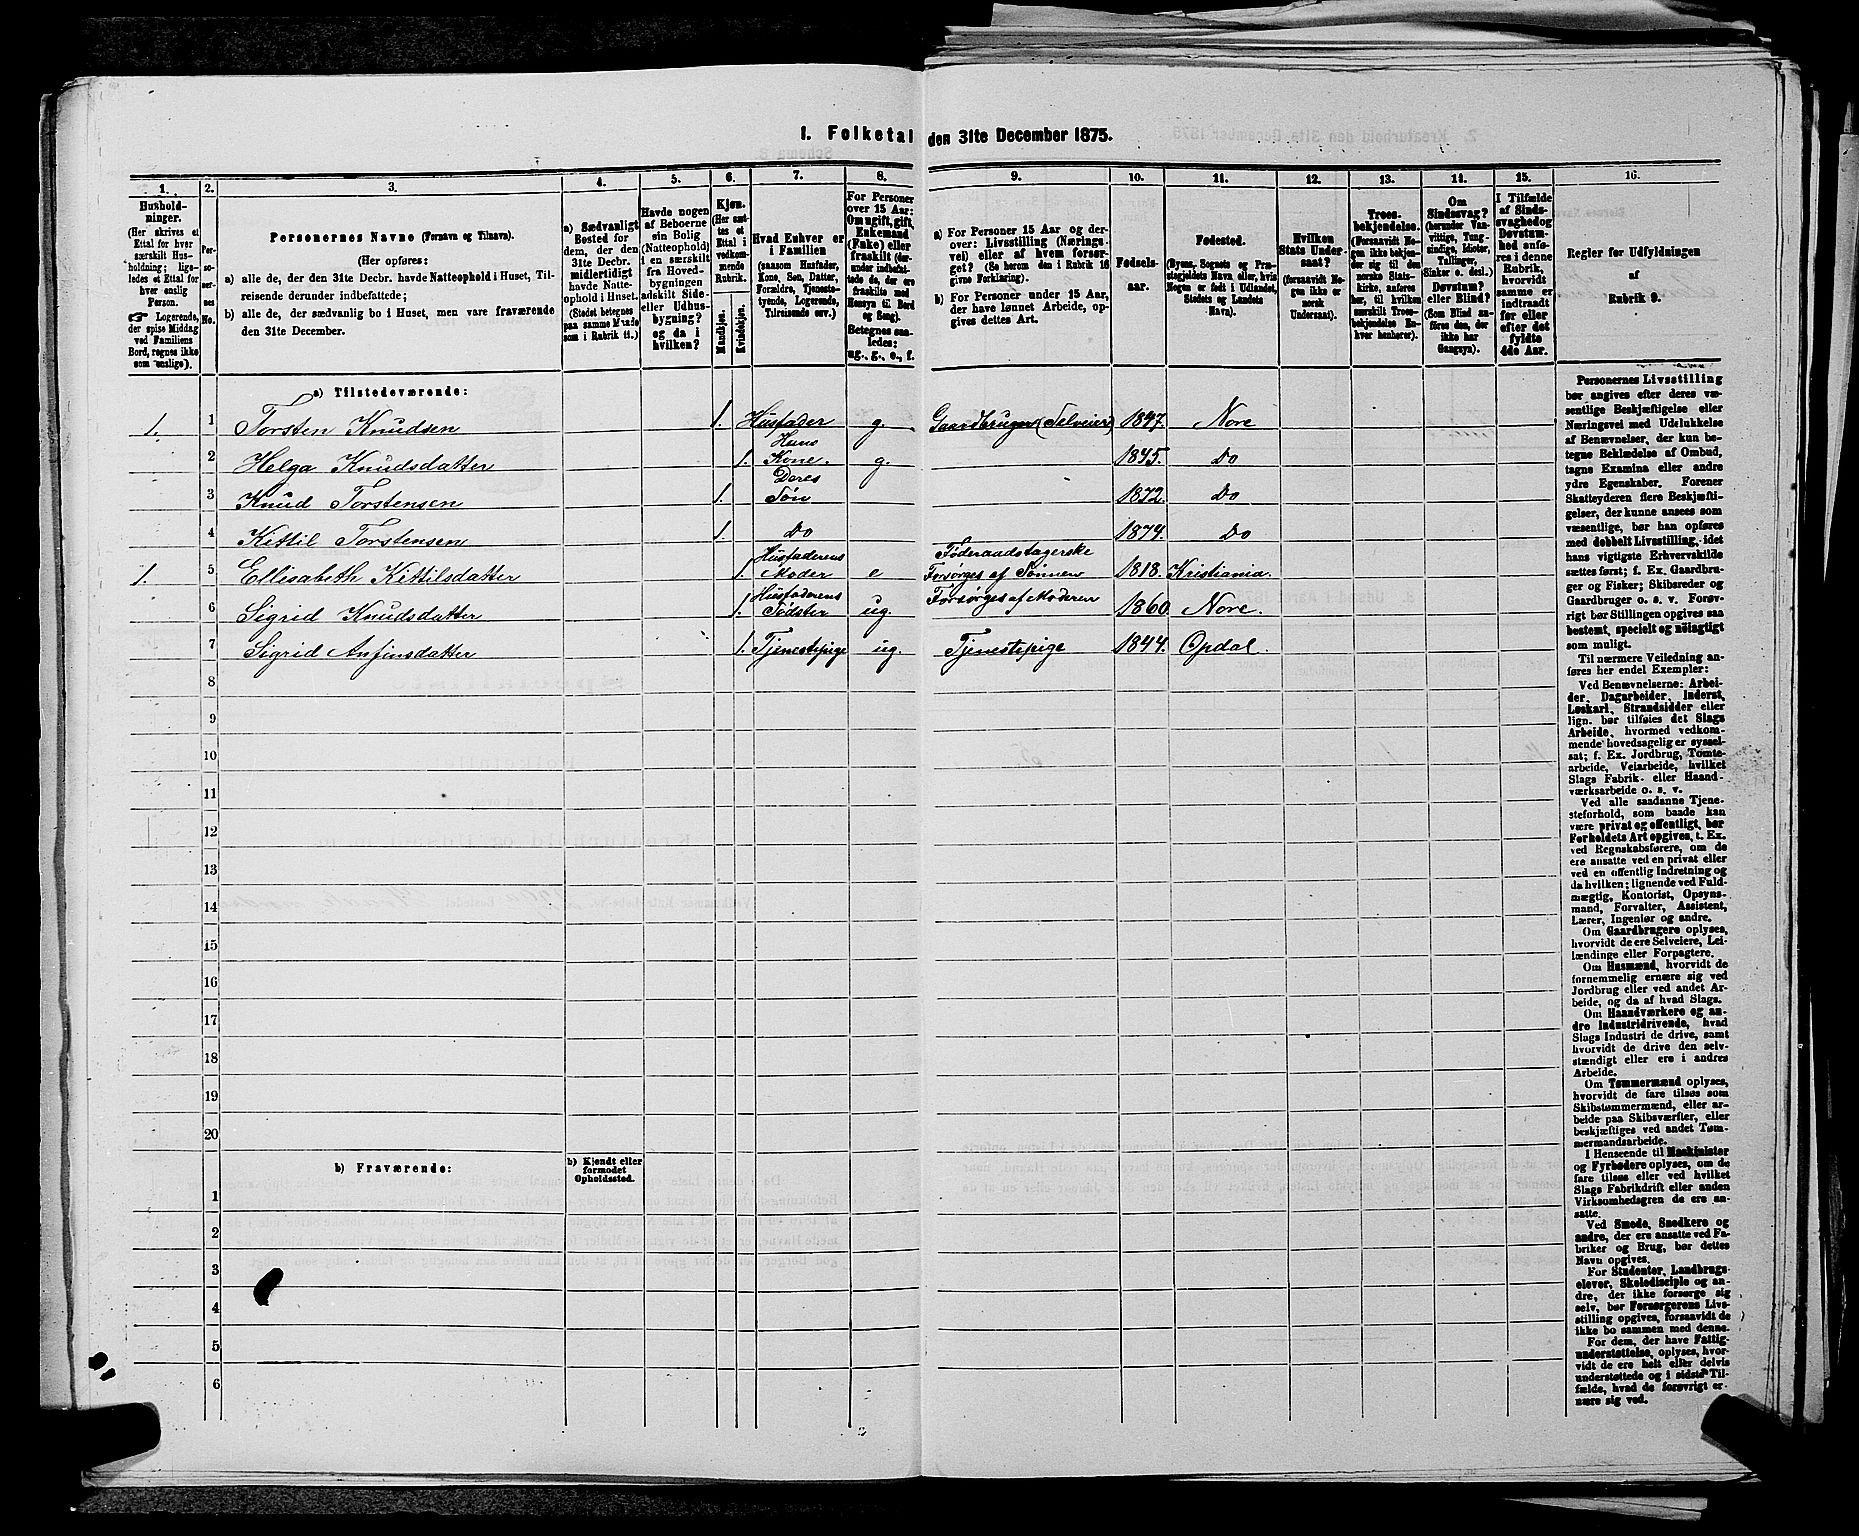 1. Folketal den 31te December 1875.
1. 2. 3. 4. 5. 6. 7. 8. 9. 10. 11. 12. 13. 14. 15. 16.
Hushold-
ninger.
(Her skrives et
Ettal for hver
særskilt Hus-
holdning; lige-
ledes et Ettal for
hver enslig
Person.
☞ Logerende,
der spise Middag
ved Familiens
Bord, regnes ikke
som enslige).
Per-
so-
ner-
nes
No.
Personernes Navne (Fornavn og Tilnavn).
(Her opføres:
a) alle de, der den 31te Decbr. havde Natteophold i Huset, Til-
reisende derunder indbefattede;
b) alle de, der sædvanlig bo i Huset, men vare fraværende
den 31te December.
a) Sædvanligt
Bosted for
dem, der den
31te Decbr.
midlertidigt
havde Natte-
ophold i Huset.
(Stedet betegnes
paa samme Maade
som i Rubrik 11.)
Havde nogen
af Beboerne
sin Bolig
(Natteophold)
i en særskilt
fra Hoved-
bygningen
adskilt Side-
eller Udhus-
bygning?
og da i
hvilken?
Kjøn.
(Her sæt-
tes et
Ettal i
vedkom-
mende
Rubrik.
Mandkjøn.
Kvindekjøn.
Hvad Enhver er
i Familien
(saasom Husfader,
Kone, Søn, Datter,
Forældre, Tjeneste-
tyende, Logerende,
Tilreisende osv.)
For Personer
over 15 Aar:
Om ugift, gift,
Enkemand
(Enke) eller
fraskilt (der-
under indbefat-
tede de, der ere
fraskilte med
Hensyn til Bord
og Seng).
Betegnes saa-
ledes:
ug., g., e., f.
a) For Personer 15 Aar og der-
over: Livsstilling (Nærings-
vei) eller af hvem forsør-
get? (Se herom den i Rubrik 16
givne Forklaring).
b) For Personer under 15 Aar,
der have lønnet Arbeide, op-
gives dettes Art.
Fødsels-
aar.
Fødested.
(Byens, Sognets og Præ-
stegjeldets Navn eller, hvis
Nogen er født i Udlandet,
Stedets og Landets
Navn).
Hvilken
Stats Under-
saat?
(forsaavidt No-
gen ikke er
norsk
Undersaat).
Troes-
bekjendelse.
(Forsaavidt No-
gen ikke bekjen-
der sig til den
norske Stats-
kirke, anføres
her, til hvilken
særskilt Troes-
bekjendelse En-
hver henhører).
Om
Sindssvag?
(herunder Van-
vittige, Tung-
sindige, Idioter,
Tullinger,
Sinker o. desl.)
Døvstum?
eller Blind?
(Som Blind an-
føres den, der
ikke har
Gangsyn).
I Tilfælde
af Sinds-
svaghed og
Døvstum-
hed anfø-
res i denne
Rubrik,
hvorvidt
samme er
indtraadt
før eller
efter det
fyldte
4de Aar.
Regler for Udfyldningen
af
Rubrik 9.
a) Tilstedeværende:
1. 1 Torsten Knudsen 1. Husfader g. Gaardbruger (Selveier) 1847. Nore
2 Helga Knudsdatter 1. Hans Kone. g. 1845. Do
3 Knud Torstensen 1. Deres Søn 1872. Do
4 Kittil Torstensen 1 Do 1874. Do
1. 5 Ellisabeth Kittilsdatter 1. Husfaderens Moder e Føderaadstagerske Forsørges af Sønnen 1818. Kristiania.
6 Sigrid Knudsdatter 1. Husfaderens Södster ug. Forsørges af Moderen 1860. Nore.
7 Sigrid Anfinsdatter 1. Tjenestepige ug. Tjenestepige 1844. Opdal.
8
9
10
11
12
13
14
15
16
17
18
19
20
b) Fraværende:
b) Kjendt eller
formodet
Opholdssted.
1
2
3
4
5
6
Personernes Livsstilling
bør angives efter deres væ-
sentlige Beskjæftigelse eller
Næringsvei med Udelukkelse
af Benævnelser, der kun be-
tegne Beklædelse af Ombud,
tagne Examina eller andre
ydre Egenskaber. Forener
Skatteyderen flere Beskjæfti-
gelser, der kunne ansees som
væsentlige, bør han opføres
med dobbelt Livsstilling, idet
hans vigtigste Erhvervskilde
sættes først; f. Ex. Gaardbru-
ger og Fisker; Skibsreder og
Gaardbruger o. s. v. Forøv-
rigt bør Stillingen opgives saa
bestemt, specielt og nøiagtigt
som muligt.
Til nærmere Veiledning an-
føres her endel Exempler:
Ved Benævnelserne: Arbei-
der, Dagarbeider, Inderst,
Løskarl, Strandsidder eller
lign. bør tilføies det Slags
Arbeide, hvormed vedkom-
mende hovedsagelig er syssel-
sat; f. Ex. Jordbrug, Tomte-
arbeide, Veiarbeide, hvilket
Slags Fabrik- eller Haand-
værksarbeide o. s. v.
Ved alle saadanne Tjene-
steforhold, som baade kan
være privat og offentligt, bør
Forholdets Art opgives, t. Ex.
ved Regnskabsførere, om de
ere ansatte ved en privat eller
ved en offentlig Indretning og
da hvilken; lignende ved Fuld-
mægtig, Kontorist, Opsyns-
mand, Forvalter, Assistent,
Lærer, Ingeniør og andre.
Om Gaardbrugere oplyses,
hvorvidt de ere Selveiere, Lei-
lændinge eller Forpagtere.
Om Husmænd, hvorvidt de
fornemmelig ernære sig ved
Jordbrug eller ved andet Ar-
beide, og da af hvad Slags.
Om Haandværkere og an-
dre Industridrivende, hvad
Slags Industri de drive, samt
hvorvidt de drive den selv-
stændigt eller ere i andres
Arbeide.
Om Tømmermænd oplyses,
hvorvidt de fare tilsøs som
Skibstømmermænd, eller ar-
beide paa Skibsværfter, eller
beskjæftiges ved andet Tøm-
mermandsarbeide.
I Henseende til Maskinister
og Fyrbødere oplyses, om de
fare tilsøs eller ved hvilket
Slags Fabrikdrift eller anden
Virksomhedsgren de ere an-
satte.
Ved Smede, Snedkere og
andre, der ere ansatte ved Fa-
briker og Brug, bør dettes
Navn opgives.
For Studenter, Landbrugs-
elever, Skoledisciple og an-
dre, der ikke forsørge sig
selv, bør Forsørgerens Livs-
stilling opgives, forsaavidt de
ikke bo sammen med denne.
For dem, der have Fattig-
understøttelse, oplyses, hvor-
vidt de ere helt eller delvis
understøttede og i sidste Til-
fælde, hvad de forøvrigt er-
nære sig ved.